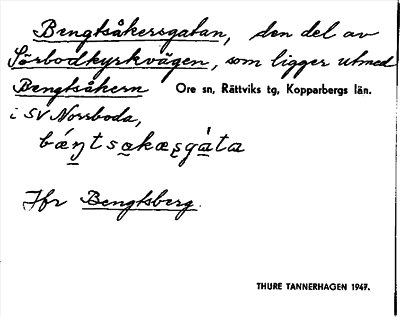 Bengtsåkersgatan, den del av
Sörbodkyrkvägen, som ligger utmed
Bengtsåkern Ore sn, Rättviks tg, Kopparbergs län.
i SV Norrboda,
Jfr Bengtsberg.
THURE TANNERHAGEN 1947.